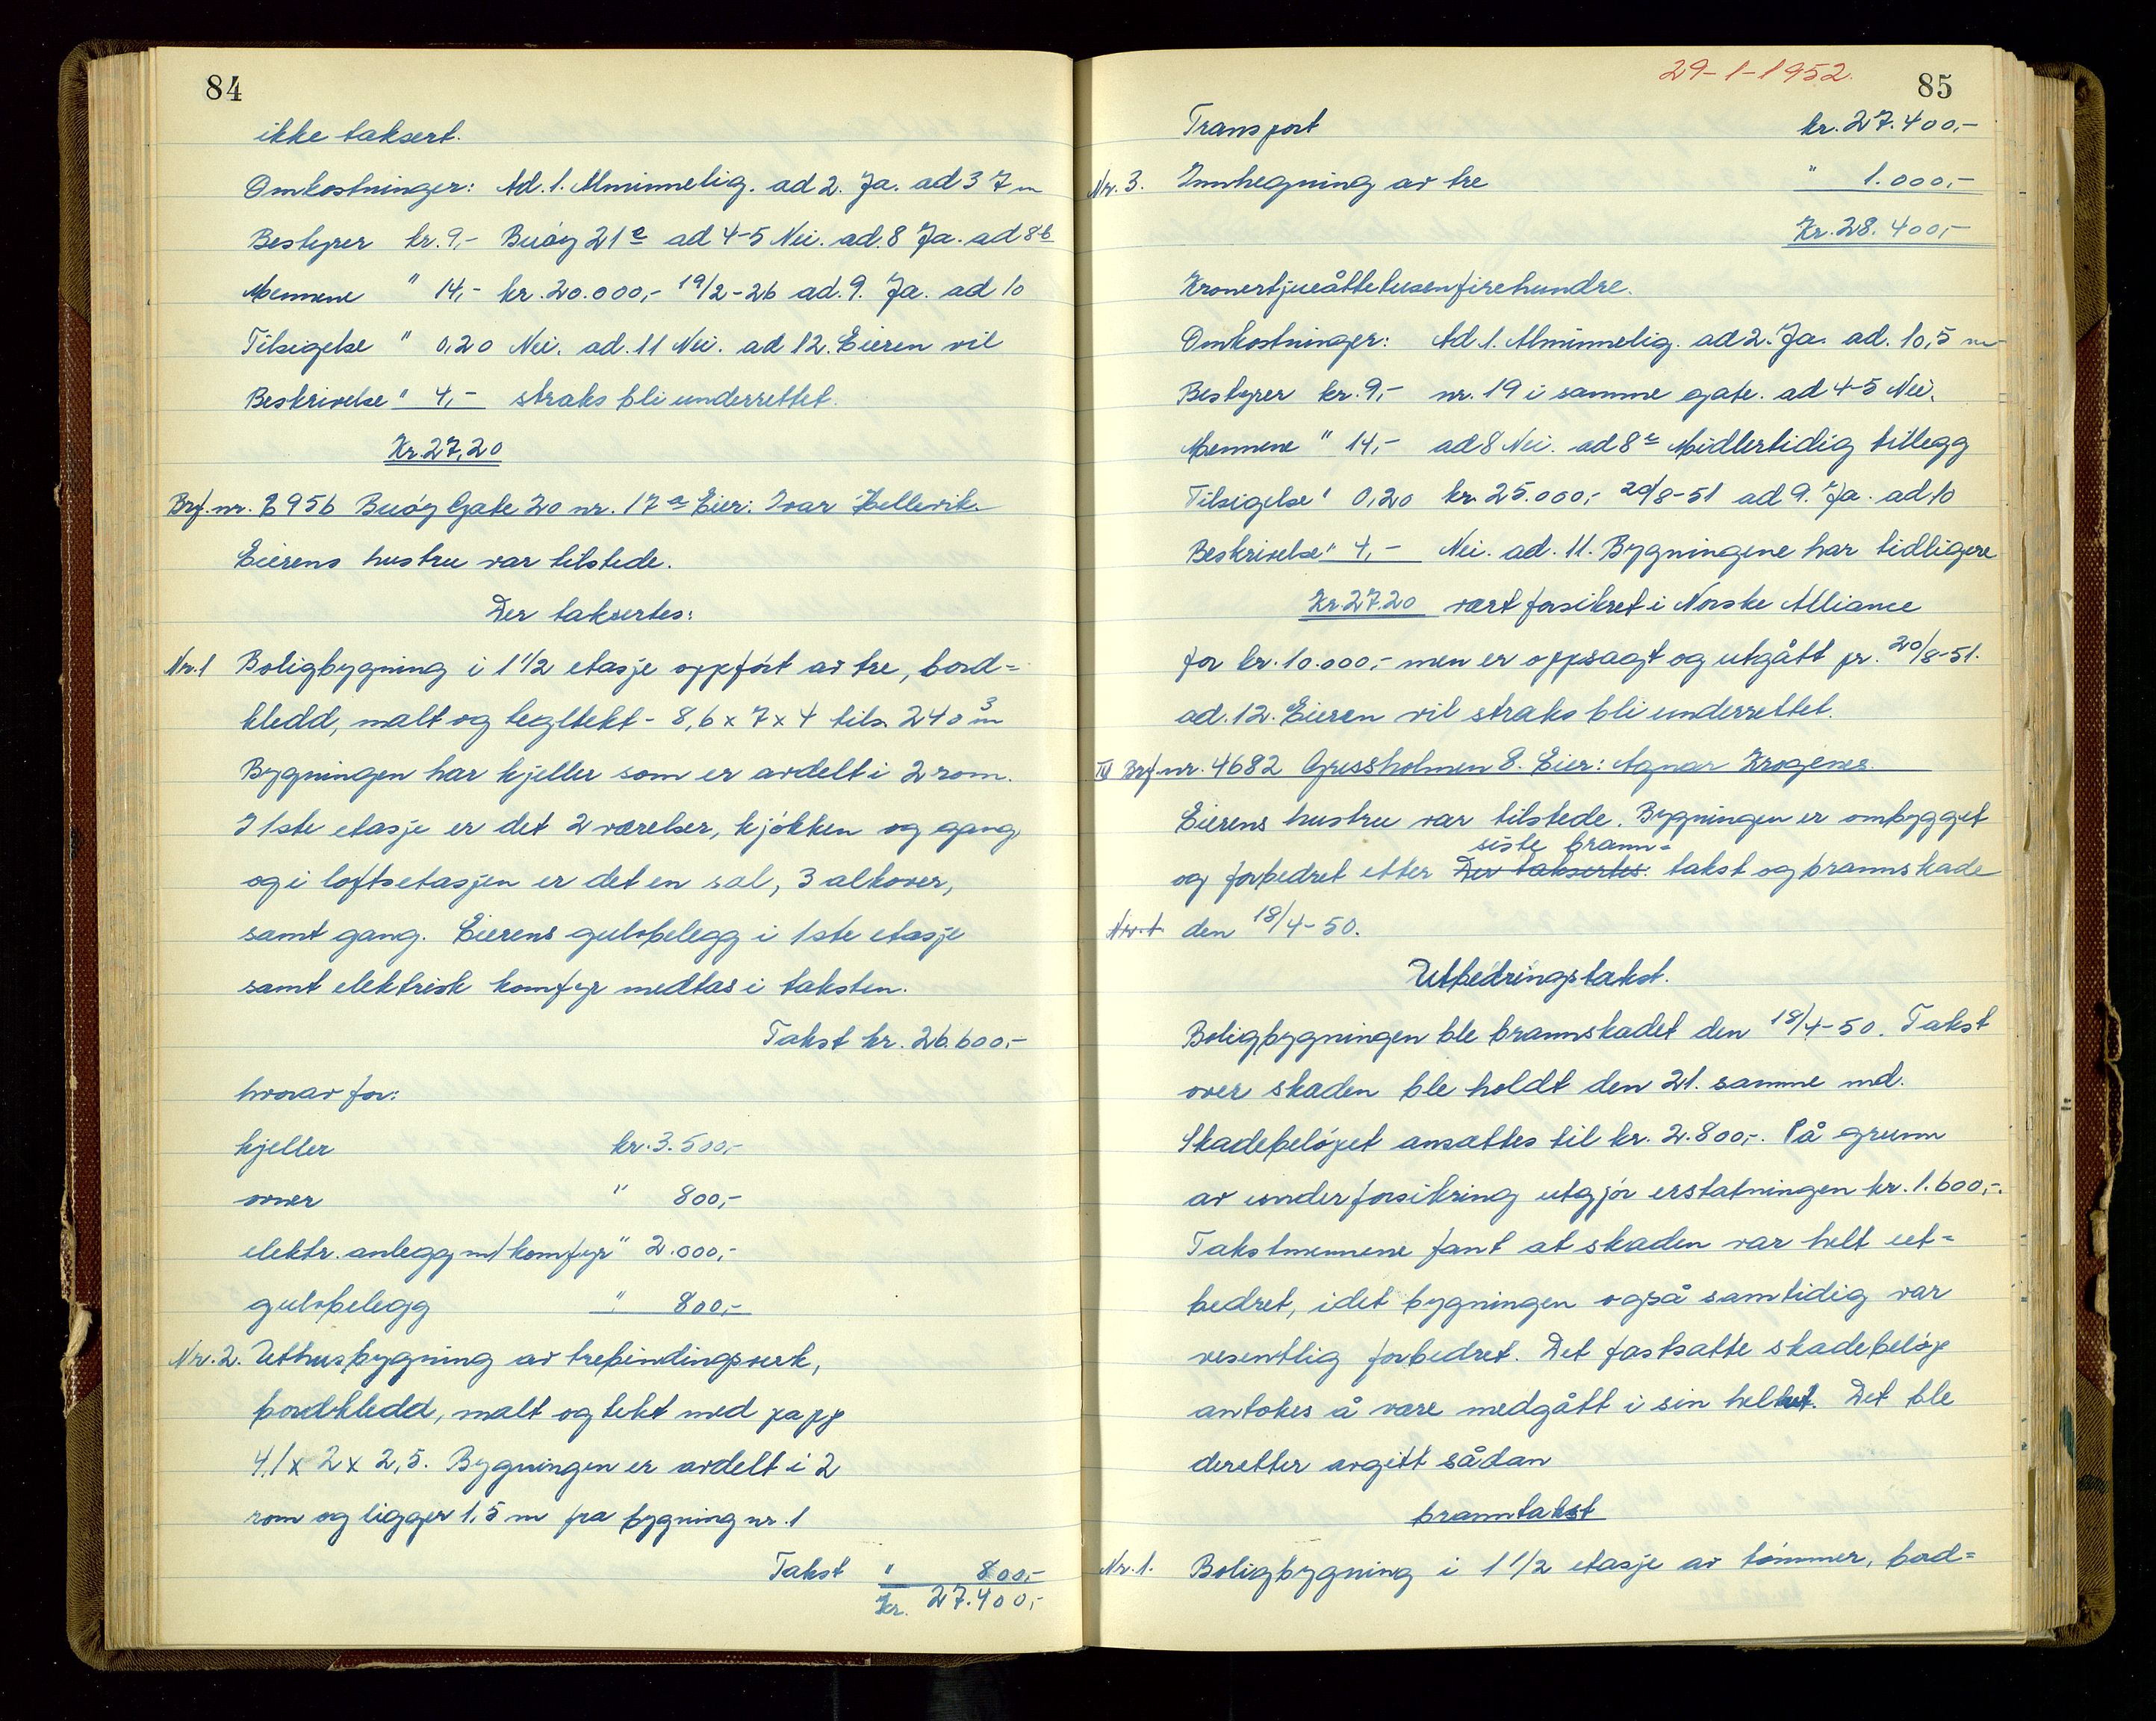 84
ikke taksert.
Omkostninger: Ad. 1. Alminnelig. ad 2. Ja. ad 3 7 m
Bestyrer kr. 9,- Buøy 21e ad 4-5 Nei. ad. 8 Ja. ad 8b
Mennene " 14,- kr. 20.000,- 19/2-26 ad. 9. Ja. ad 10
Tilsigelse " 0,20 Nei. ad. 11 Nei. ad 12. Eieren vil
Beskrivelse " 4,- straks bli underrettet.
Kr. 27,20
Brf. nr. 956 Buøy Gate 20 nr. 17a Eier: Ivar Hellevik.
Eierens hustru var tilstede.
Der taksertes:
Nr. 1 Boligbygning i 1 1/2 etasje oppført av tre, bord=
kledd, malt og tegltekt - 8,6 x 7 x 4 tils. 240 m3
Bygningen har kjeller som er avdelt i 2 rom.
I 1ste etasje er det 2 værelser, kjøkken og gang,
og i loftsetasjen er det en sal, 3 alkover,
samt gang. Eierens gulvbelegg i 1ste etasje
samt elektrisk komfyr medtas i taksten.
Takst kr. 26.600,-
hvorav for:
kjeller kr. 3.500,-
ovner " 800,-
elektr. anlegg m/komfyr " 2.000,-
gulvbelegg " 800,-
Nr. 2. Uthusbygning av trebindingsverk,
bordkledd, malt og tekt med papp
4,1 x 2 x 2,5. Bygningen er avdelt i 2
rom og ligger 1,5 m fra bygning nr. 1
Takst " 800,-
Kr. 27.400,-
29-1-1952.
85
Transport kr. 27.400,-
Nr. 3. Innhegning av tre " 1.000,-
Kr. 28.400,-
Kronertjueåttetusenfirehundre.
Omkostninger: Ad. 1. Alminnelig. ad 2. Ja. ad. 10,5 m
Bestyrer kr. 9,- nr. 19 i samme gate. ad 4-5 Nei.
Mennene " 14,- ad 8 Nei. ad 8e Midlertidig tillegg
Tilsigelse " 0,20 kr. 25.000,- 20/8-51 ad 9. Ja. ad. 10
Beskrivelse " 4,- Nei. ad. 11. Bygningene har tidligere
Kr. 27.20 vært forsikret i Norske Alliance
for kr. 10.000,- men er oppsagt og utgått pr. 20/8-51.
ad. 12. Eieren vil straks bli underrettet.
Brf. nr. 4682 Gressholmen 8. Eier: Agnar Krogenes.
Eierens hustru var tilstede. Bygningen er ombygget
siste brann=
og forbedret etter Der taksertes: takst og brannskade
Nr. 1. den 18/4-50.
Utbedringstakst.
Boligbygningen ble brannskadet den 18/4-50. Takst
over skaden ble holdt den 21. samme md.
Skadebeløpet ansattes til kr. 2.800,-. På grunn
av underforsikring utgjør erstatningen kr. 1.600,-.
Takstmennene fant at skaden var helt ut=
bedret, idet bygningen også samtidig var
vesentlig forbedret. Det fastsatte skadebeløp
antokes å være medgått i sin helhet. Det ble
deretter avgitt sådan
branntakst
Nr. 1. Boligbygning i 1 1/2 etasje av tømmer, bord=